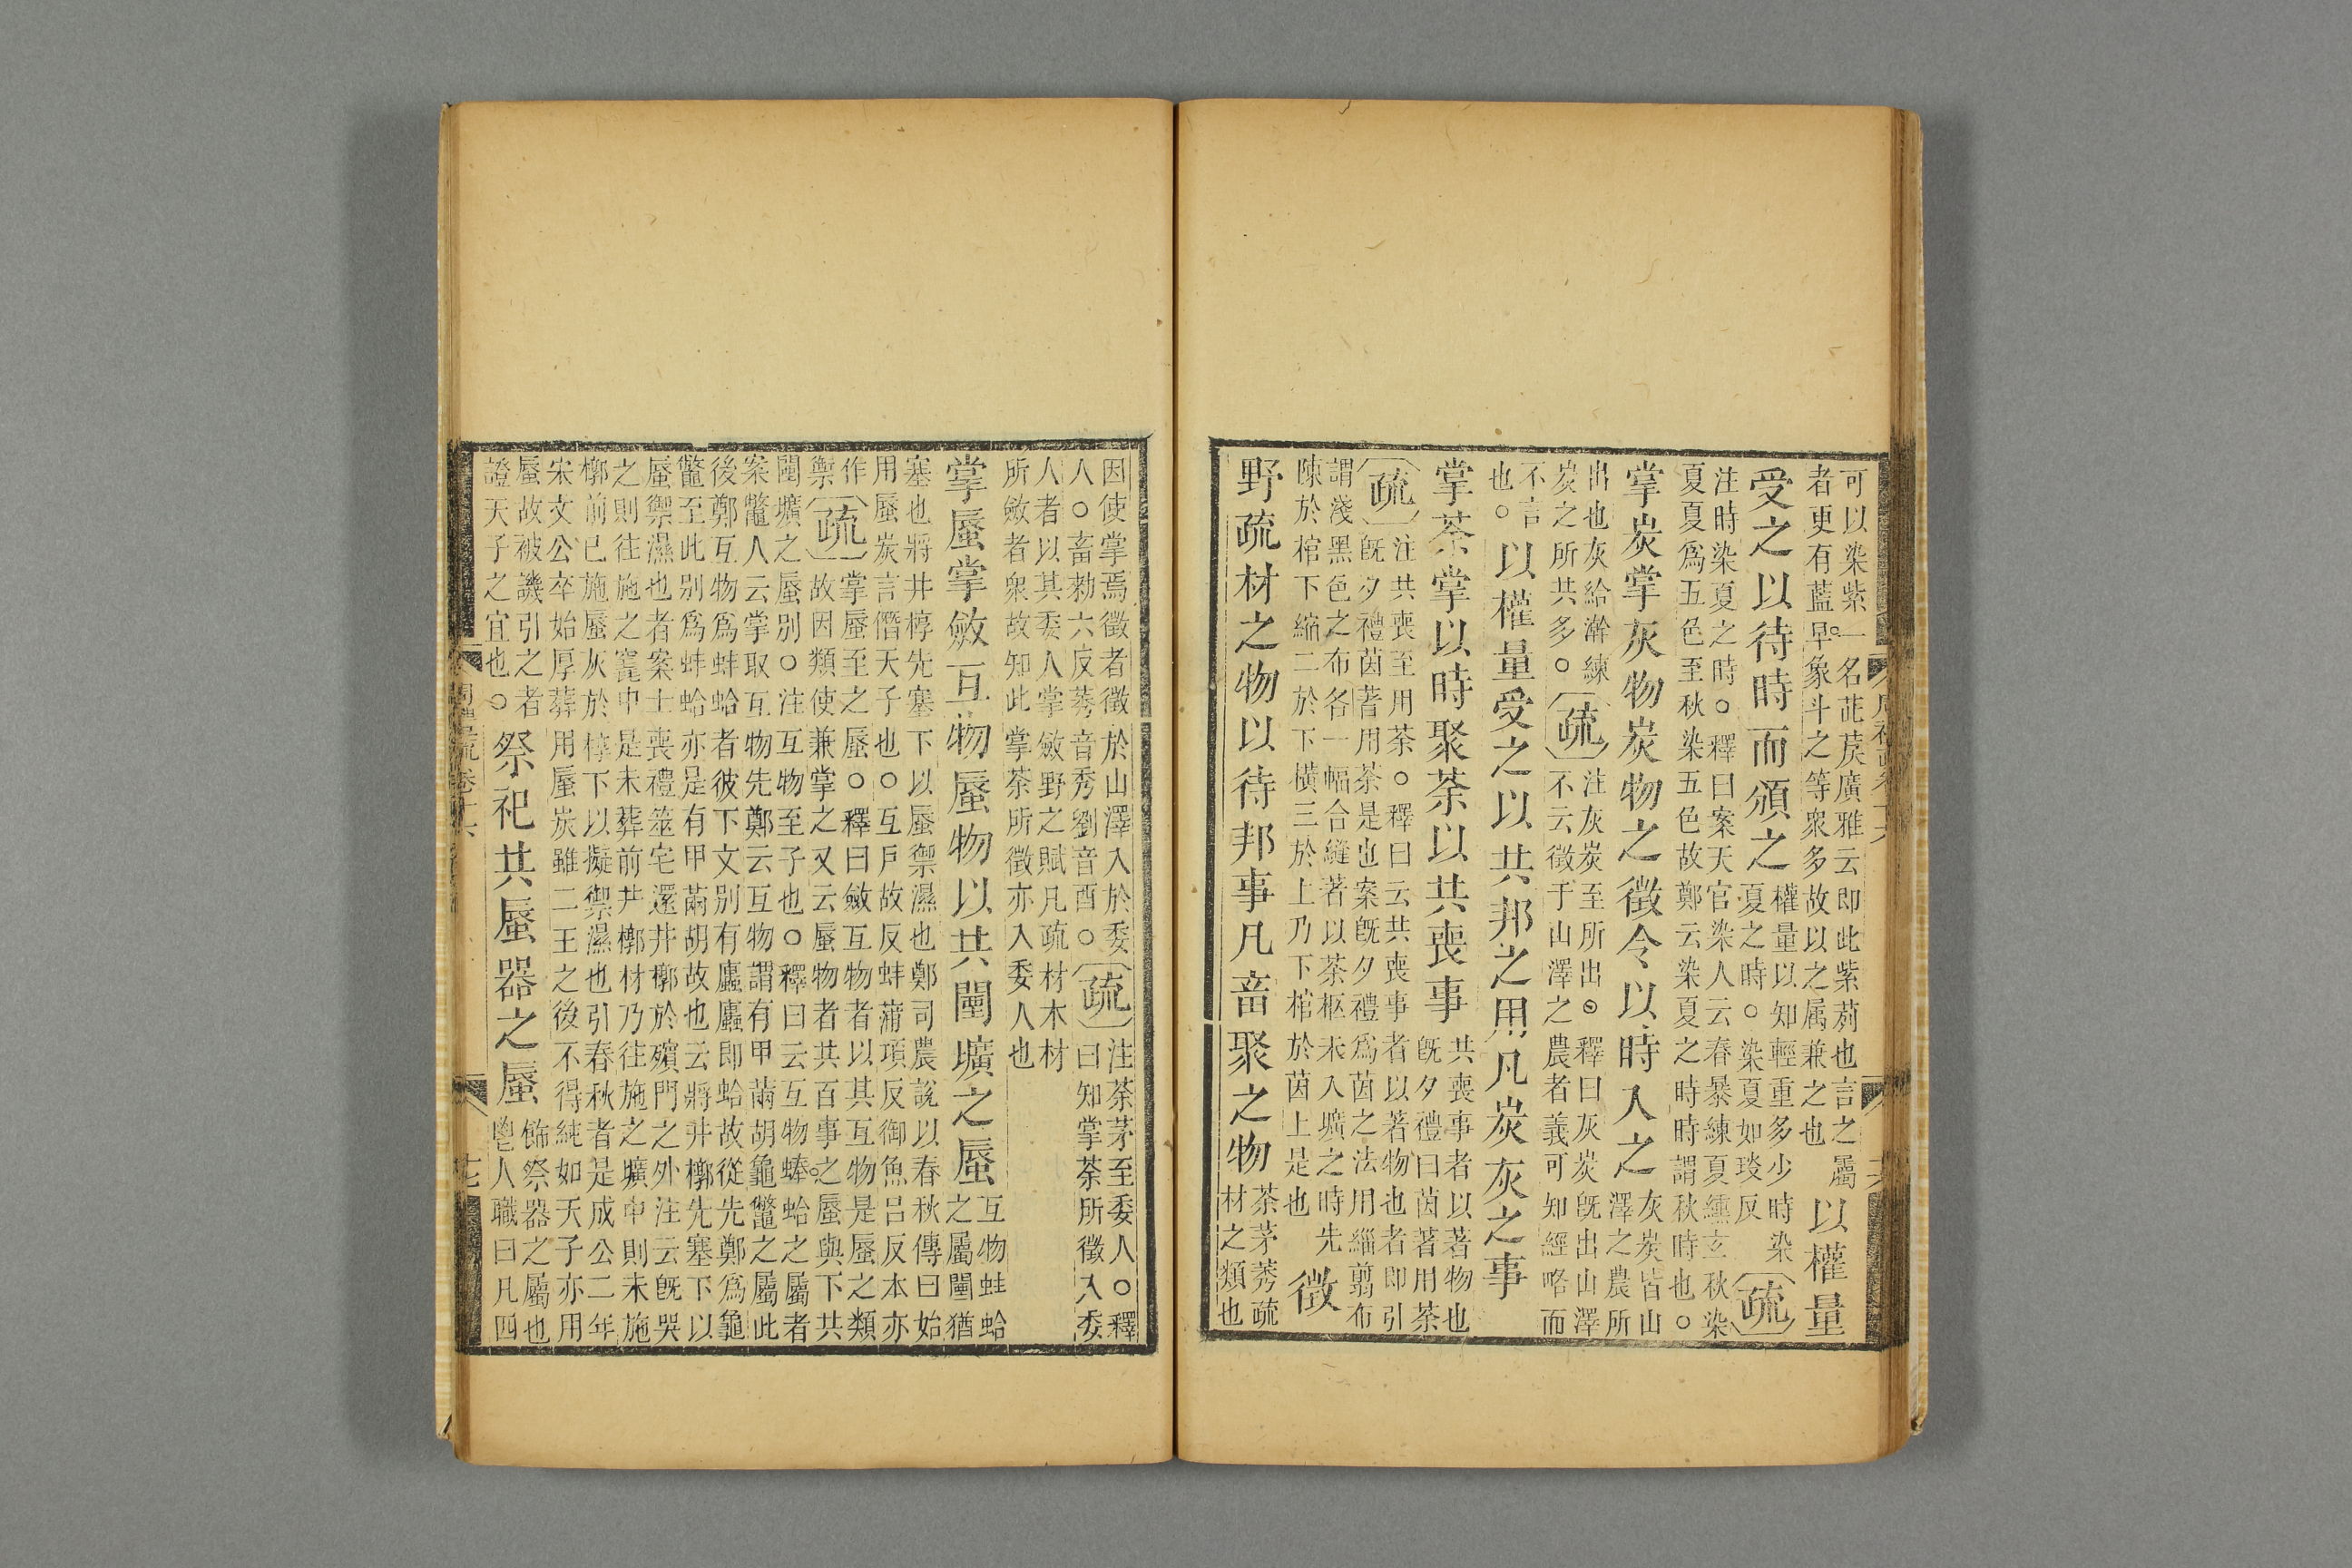 可以染紫一名茈䓞廣雅云即此紫䓞也言之屬
者更有藍皁象斗之等衆多故以之属兼之也
以權量
受之以待時而頒之
權量以知輕重多少時染
夏之時。染夏如琰反
疏
注時染夏之時○釋曰案天官染人云春暴練夏纁玄秋染
夏夏爲五色至秋染五色故鄭云染夏之時時謂秋時也○
掌炭掌灰物炭物之徵令以時入之
灰炭皆山
澤之農所
出也灰給澣練
炭之所共多○
疏
注灰炭至所出○釋曰灰炭既出山澤
不云徵于山澤之農者義可知經略而
不言
也○
以權量受之以共邦之用凡炭灰之事
掌荼掌以時聚荼以共喪事
共喪事者以著物也
既夕禮曰茵著用荼
疏
注共喪至用荼○釋曰云共喪事者以著物也者即引
既夕禮茵著用荼是也案既夕禮爲茵之法用緇翦布
謂淺黑色之布各一幅合縫著以荼柩未入壙之時先
陳於棺下縮二於下橫三於上乃下棺於茵上是也
徵
野疏材之物以待邦事凡畜聚之物
荼茅莠疏
材之類也
因使掌焉徵者徵於山澤入於委
人○畜勑六反莠音秀劉音酉○
疏
注荼茅至委人○釋
曰知掌荼所徵入委
人者以其委人掌斂野之賦凡疏材木材
所斂者衆故知此掌荼所徵亦入委人也
掌蜃掌斂互物蜃物以共闉壙之蜃
互物蚌蛤
之屬闉猶
塞也將井椁先塞下以蜃禦濕也鄭司農說以春秋傳曰始
用蜃炭言僭天子也○互戶故反蚌蒲項反御魚呂反本亦
作
禦
疏
掌蜃至之蜃○釋曰斂互物者以其互物是蜃之類
故因類使兼掌之又云蜃物者共百事之蜃與下共
闉壙之蜃別○注互物至子也○釋曰云互物蜯蛤之屬者
案鼈人云掌取互物先鄭云互物謂有甲䓣胡龜鼈之屬此
後鄭互物爲蚌蛤者彼下文別有蠯蠯即蛤故從先鄭爲龜
鼈至此別爲蚌蛤亦是有甲䓣胡故也云將井槨先塞下以
蜃禦濕也者案士喪禮筮宅還井槨於殯門之外注云既哭
之則往施之竁中是未葬前井槨材乃往施之壙中則未施
槨前已施蜃灰於椁下以擬禦濕也引春秋者是成公二年
宋文公卒始厚葬用蜃炭雖二王之後不得純如天子亦用
蜃故被譏引之者
證天子之宜也○
祭祀共蜃器之蜃
飾祭器之屬也
鬯人職曰凡四
周禮疏卷十六